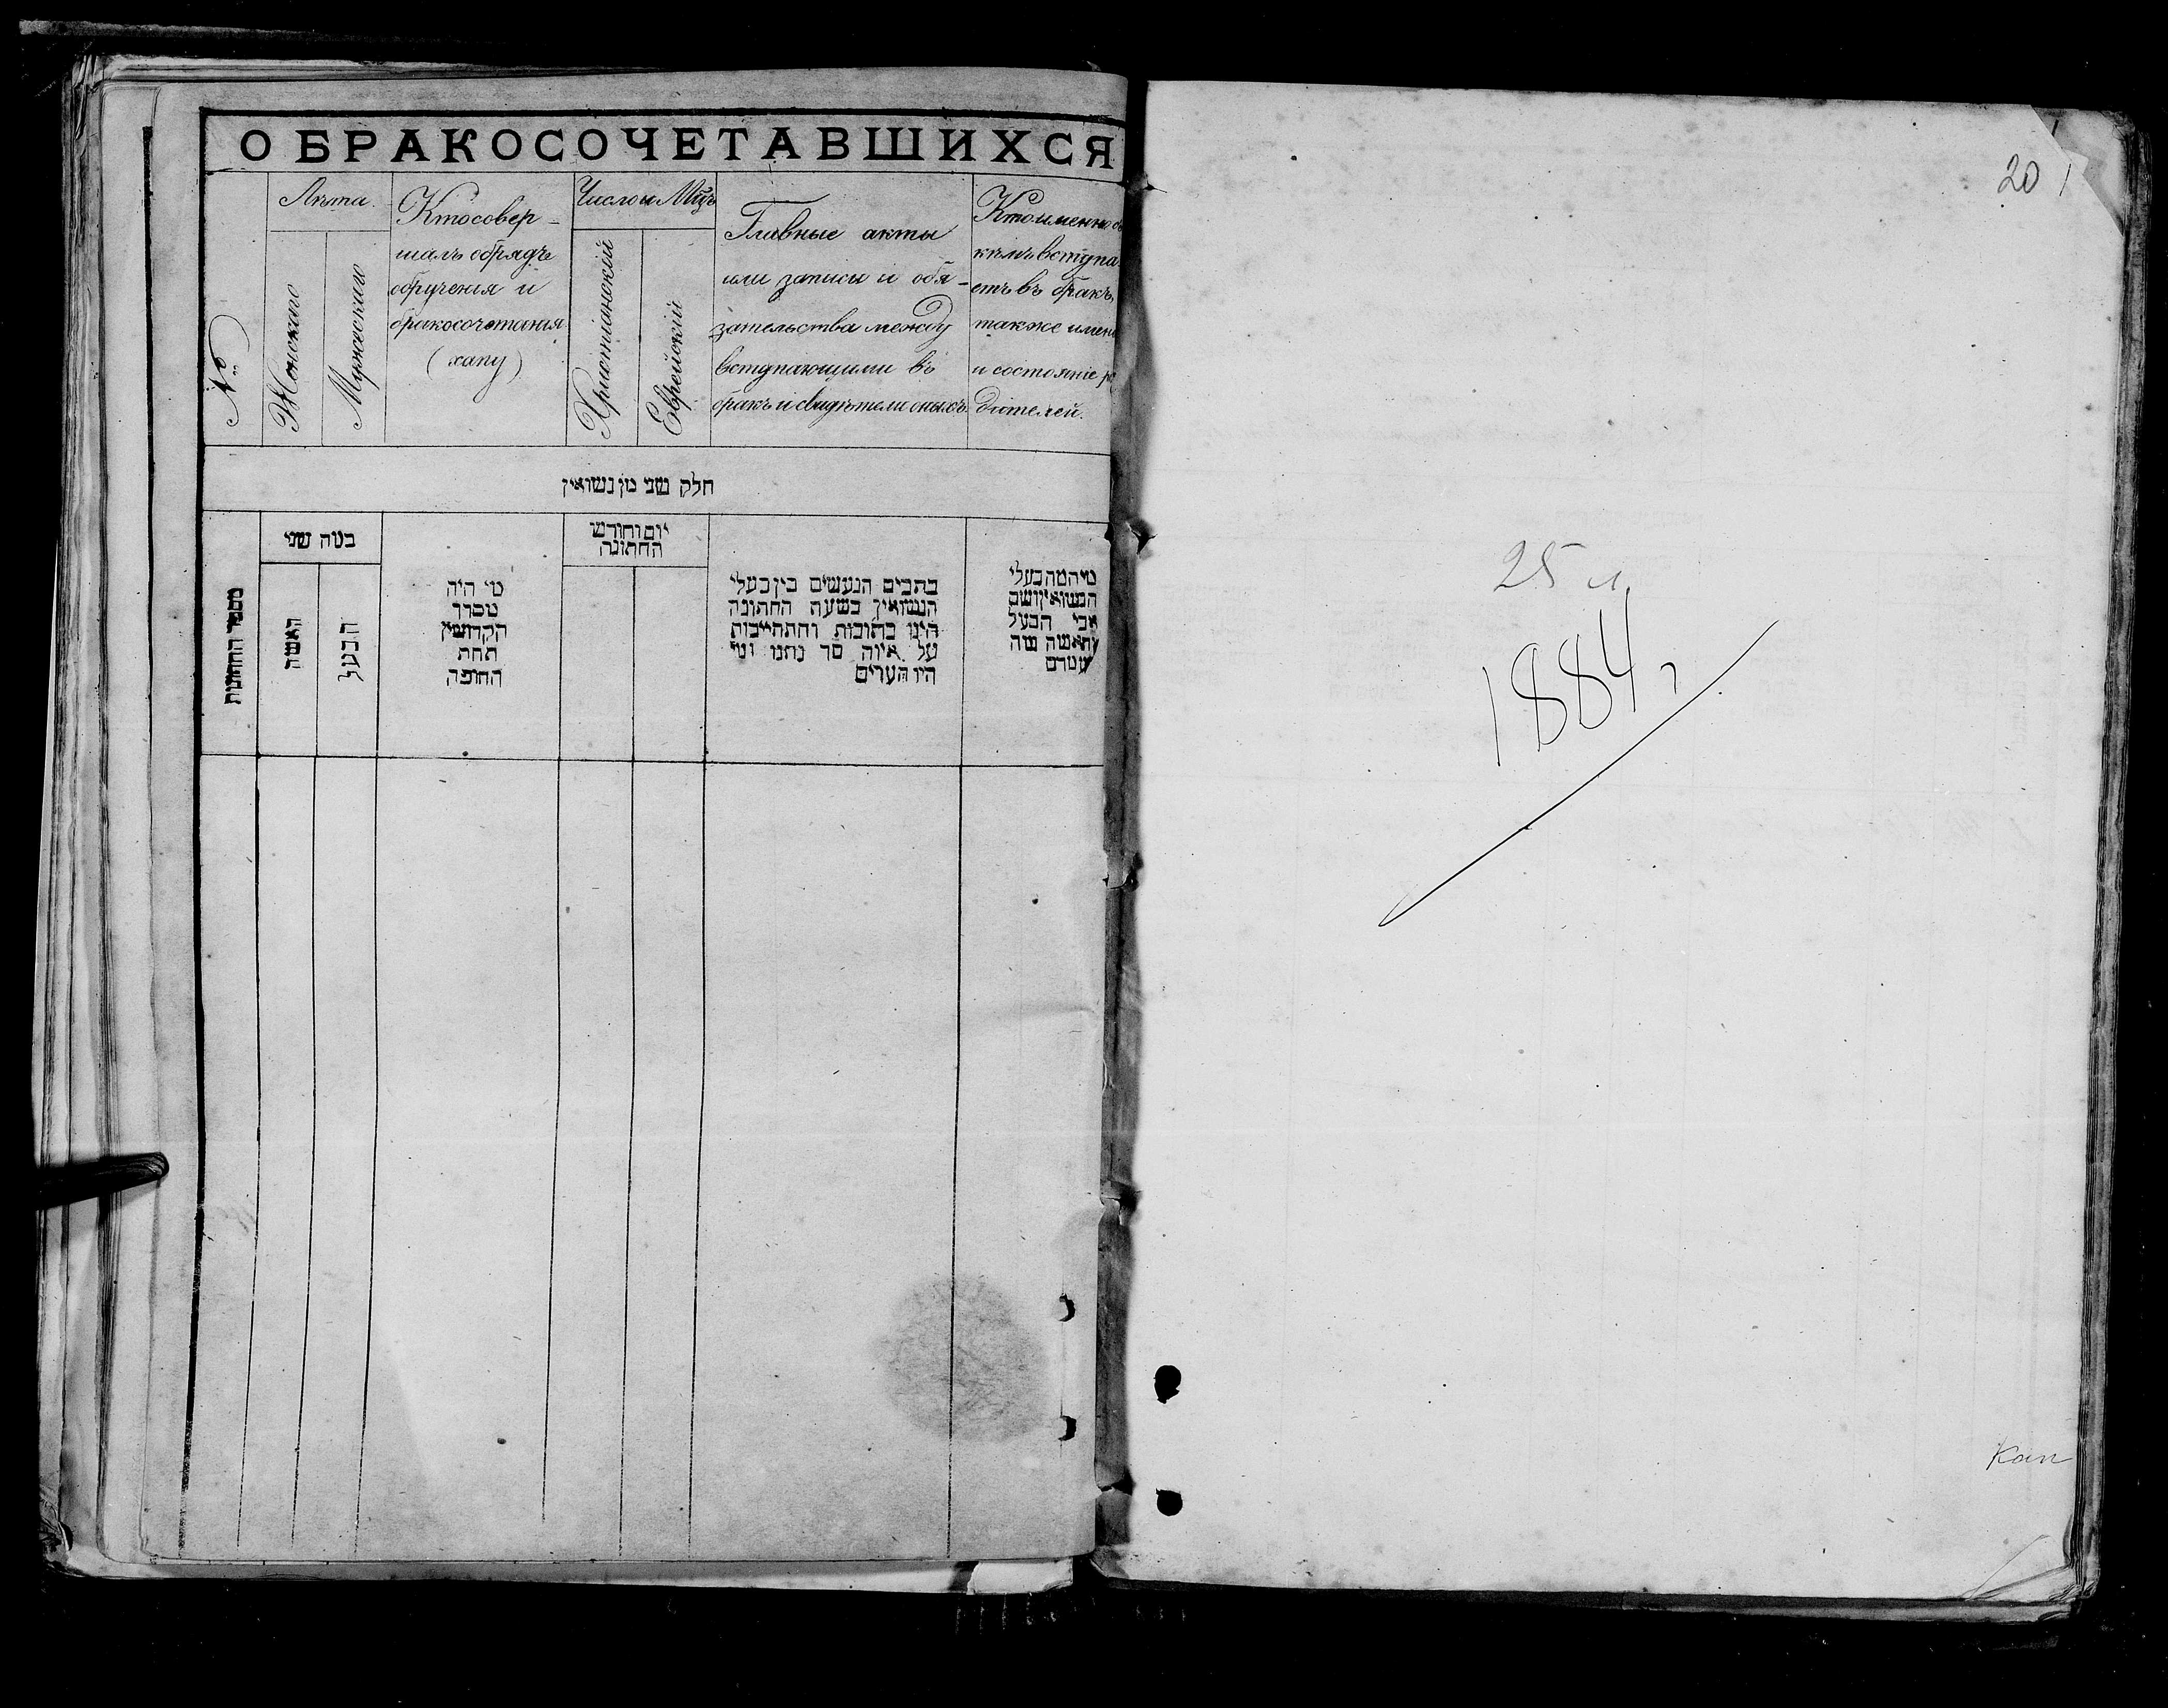 О БРАКОСОЧЕТАВШИХСЯ
№
Лѣта.
Женскаго
Мужескаго
Кто совер-
шалъ обрядъ
обрученія и
бракосочетанія
(хапу)
Число и Мцъ
Христіанскій
Еврейскій
Главные акты
или записи и обя-
зательства между
вступающими въ
бракъ и свидѣтели оныхъ.
Кто именно съ
кѣмъ вступа
етъ въ бракъ,
также имена
и состояніе ро
дителей.
חלק שני מן נשואין
מספר החתונות
במה שני
האשה
הבעל
מי היה
מסדר
הקדושין
תחת
החופה
יום וחודש
החתונה
כתבים הנעשים בין בעלי
הנשואין בשעת החתונה
היינו כתובות והתחייבות
על איזה סך נתנו ומי
היו העדים
מי המה בעלי
הנשואין ושם
אבי הבעל
והאשה ומה
מעמדם
20
25 л.
1884 г
Кап